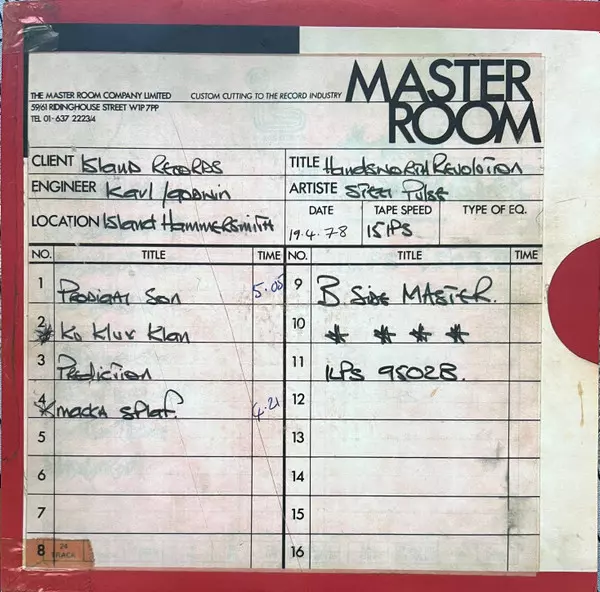 MASTER ROOM
THE MASTER ROOM COMPANY LIMITED CUSTOM CUTTING TO THE RECORD INDUSTRY
59/61 RIDINGHOUSE STREET W1P 7PP
TEL 01-637 2223/4
CLIENT Island Records TITLE Handsworth Revolution
ENGINEER Karl ARTISTE Steel Pulse
LOCATION Island Hammersmith DATE 19.4.78 TAPE SPEED 15 IPS TYPE OF EQ.
NO. TITLE TIME NO. TITLE TIME
1 Prodigal Son 5.05 9 B Side MASTER.
2 * Ku Klux Klan 10 * * * *
3 Prediction 11 ILPS 9502B.
4 * Macka Splaf. 4.21 12
5 13
6 14
7 15
8 24 TRACK 16